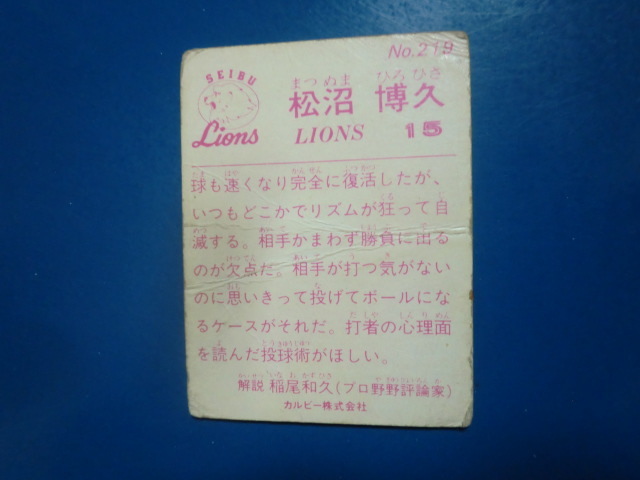 No.219
SEIBU
Lions
まつ ぬま ひろ ひさ
松沼 博久
LIONS 15
球も速くなり完全に復活したが、
いつもどこかでリズムが狂って自
滅する。相手かまわず勝負に出る
のが欠点だ。相手が打つ気がない
のに思いきって投げてボールにな
るケースがそれだ。打者の心理面
を読んだ投球術がほしい。
解説 稲尾和久(プロ野野評論家)
カルビー株式会社